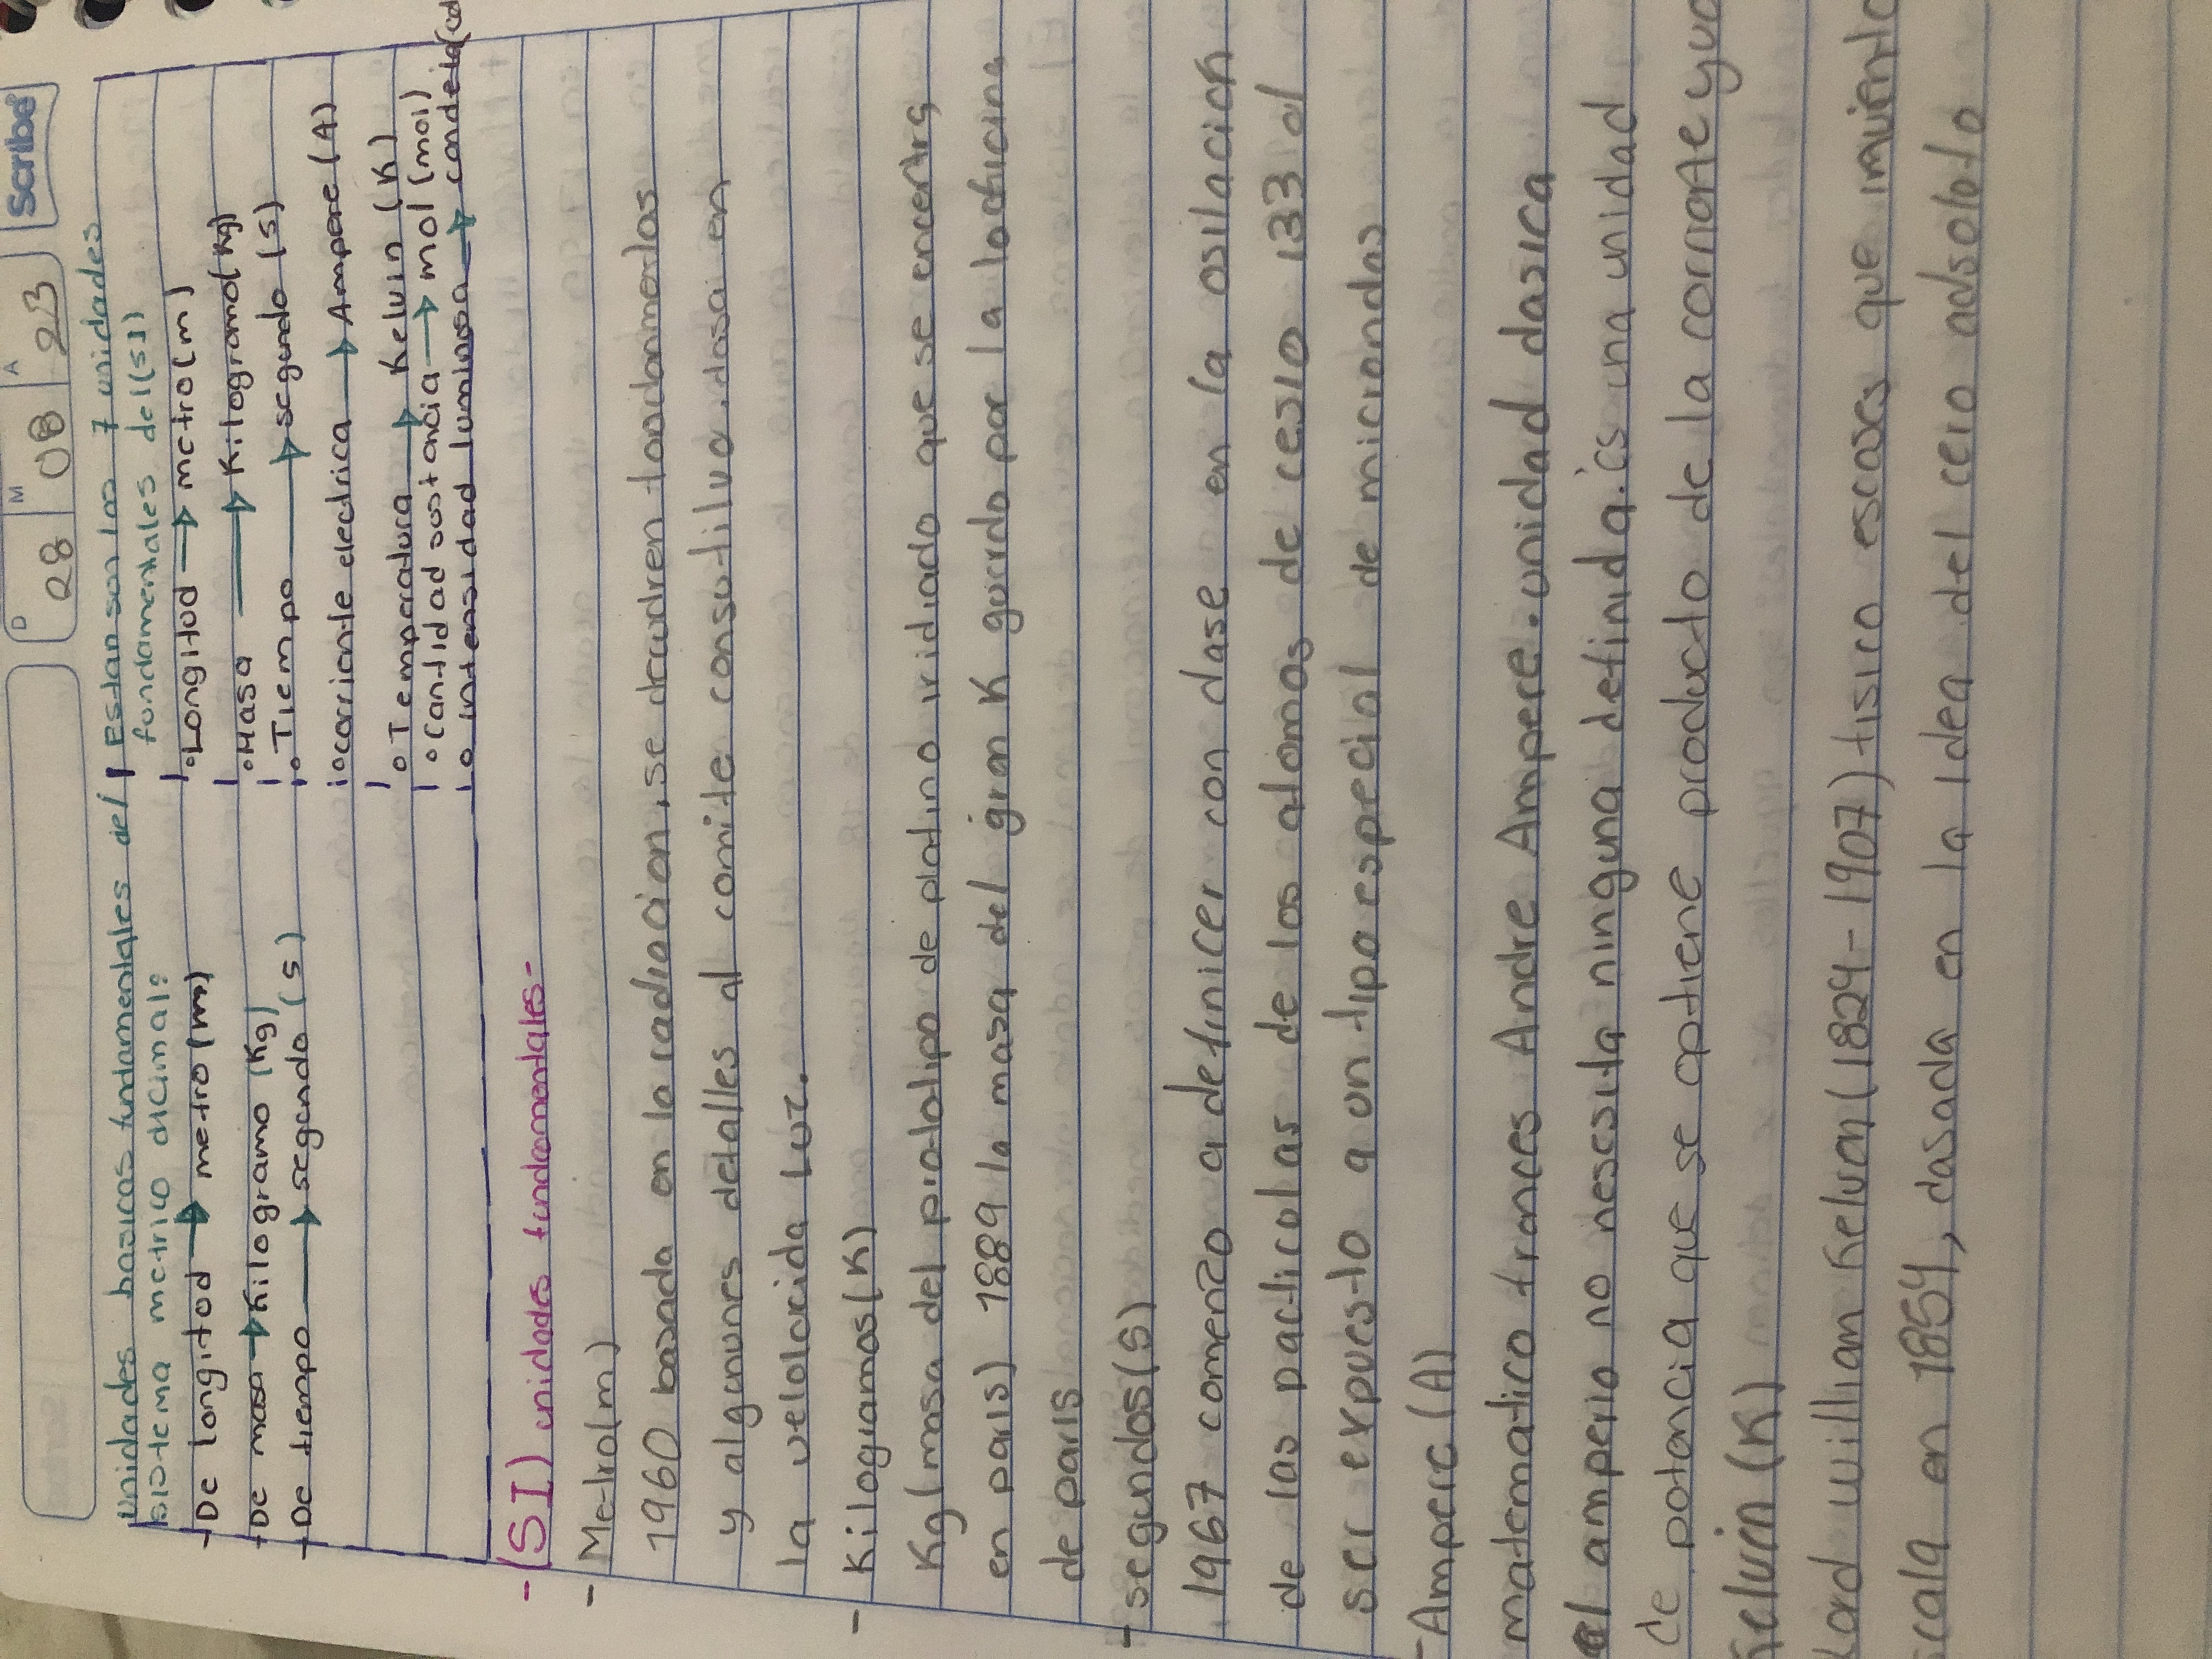 D M A
28 08 23 Scribe
Unidades basicas fundamentales del
sistema metrico dicimal?
- De longitod → metro (m)
- De masa → Kilogramo (Kg)
- De tiempo → segundo (s)
Estan son las 7 unidades
fundamentales del (sI)
° Longitod → metro (m)
° Masa → Kilogramo (Kg)
° Tiempo → segundo (s)
° corriente electrica → Ampere (A)
° Temperatura → Kelvin (K)
° Cantidad sustancia → mol (mol)
° intensidad luminosa → candela (cd
- (SI) unidades fundamentales -
- Metro(m)
1960 basada en la radiacion, se
y algunones detalles al comite en
la velolocida Luz.
- Kilogramos(K)
Kg(masa del prototipo de platino iridiado que se encentra
en paris) 1889 la masa del gran K guardo por la
de paris
- segundos(s)
1967 comenzo a definicer con dase en la osilacion
de las particolas de los atomos de cesio 133 al
ser expuesto a un tipo especial de microndas
- Ampere (A)
matematico frances Andre Ampere. unidad dasica
el amperio no nescsita ninguna definida. es una unidad
de potancia que se optiene producto de la corriante y ua
Kelvin (K)
Lord willian Kelvan (1824-1907) fisico escoses que
scala en 1854, dasada en la idea del cero adsoloto